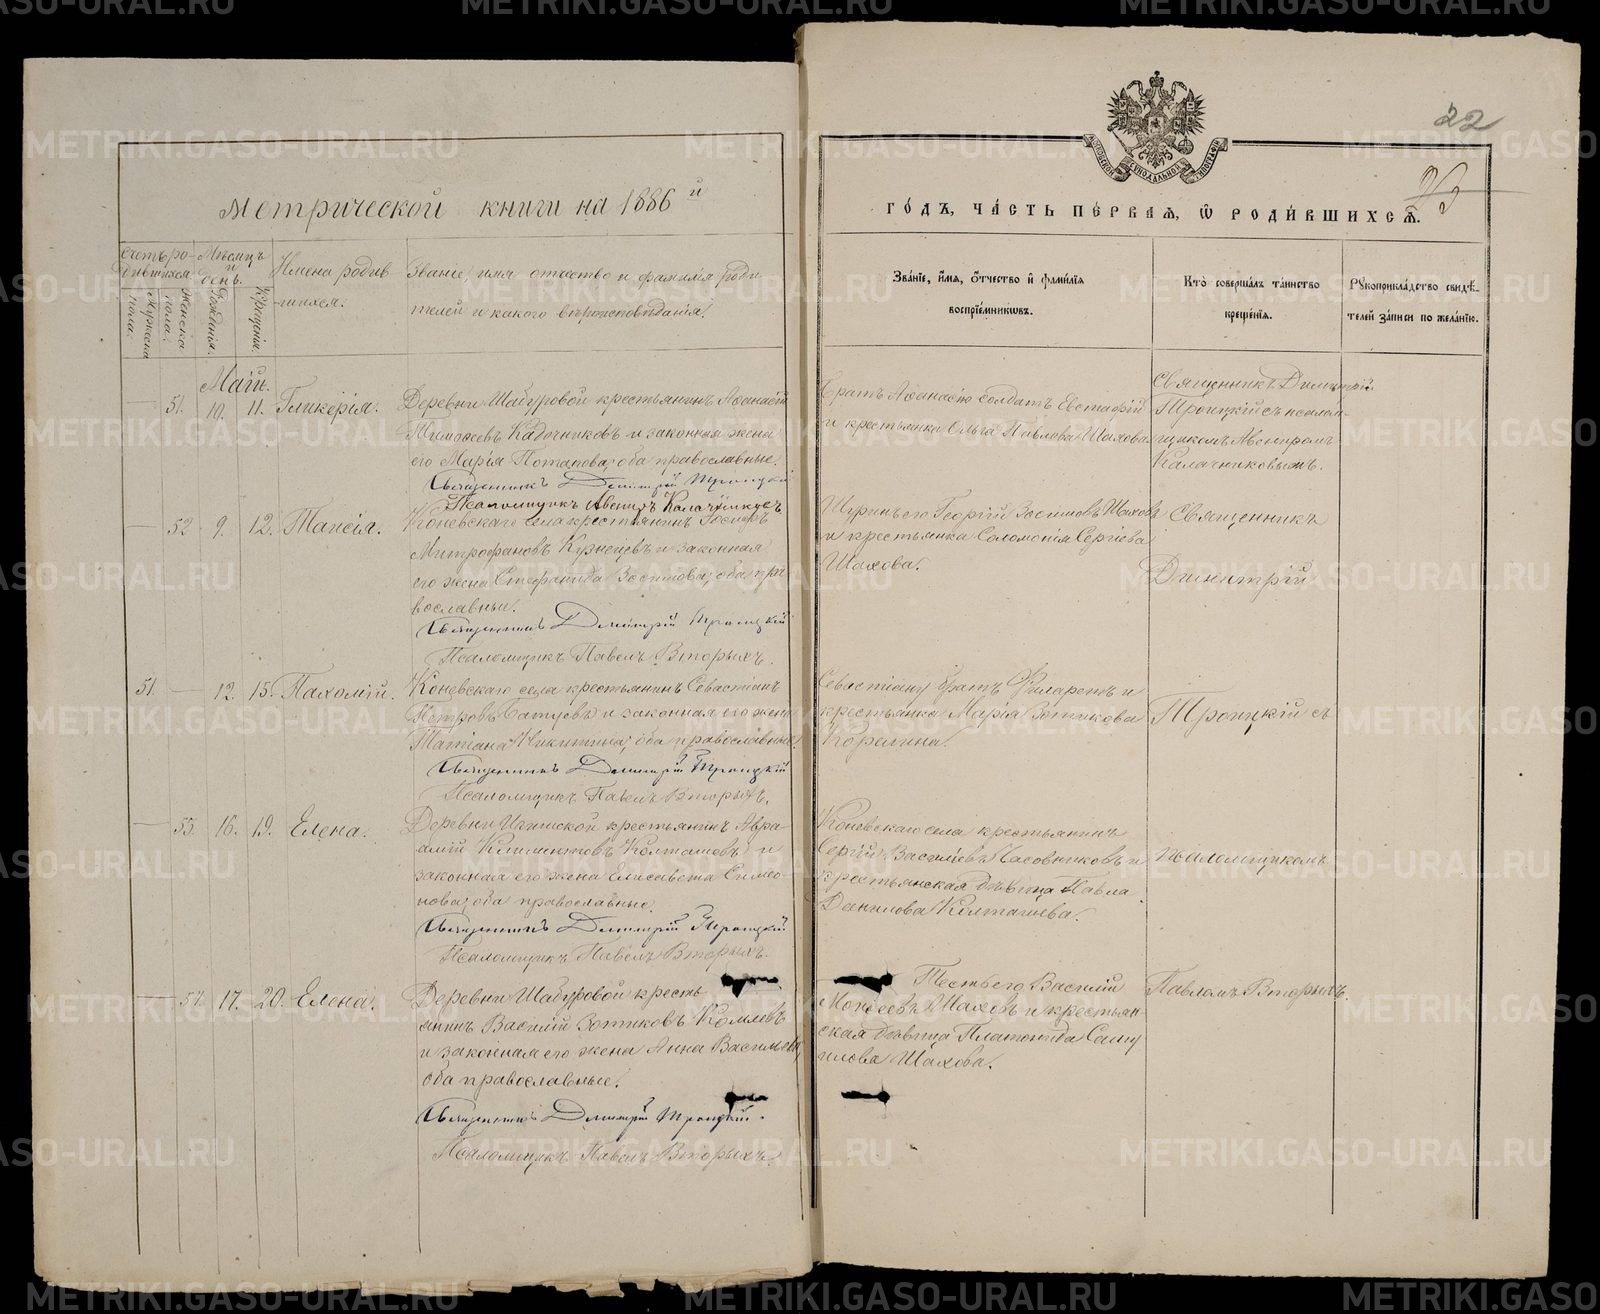 22
Метрической книги на 1886й
го́дъ, ча́сть пе́рваѧ, ѡ҆ роди́вшихсѧ.
Счетъ ро-
дившихся.
Мужеска
пола.
Женска
пола.
Мѣсяцъ
и
день.
Рожденія.
Крещенія.
Имена родив
-шихся.
Званіе, имя отчество и фамилія роди
телей и какого вѣроисповѣданія.
Зва́ніе, и҆́мѧ, ѻ҆́тчество и҆ фами́лїѧ
воспрїе́мниковъ.
Кто̀ соверша́лъ та́инство
креще́нїѧ.
Рꙋкоприкла́дство свидѣ́-
телей за́писи по жела́нїю.
Май.
51. 10. 11. Гликерія.
Деревни Шабуровой крестьянинъ Афанасій
Тимофеевъ Кадочниковъ и законная жена
его Марія Потапова, оба православные.
Священникъ Димитрій Троицкій
Псаломщикъ Авениръ Калачниковъ
Братъ Афанасію солдатъ Евстафій
и крестьянка Ольга Павлова Шахова
Священникъ Димитрій
Троицкій съ псалом-
щикомъ Авениромъ
Калачниковымъ.
52 9. 12. Таисія.
Коневскаго села крестьянинъ
Митрофановъ Кузнецовъ и законная
его жена Стефанида Зосимова, оба пра
вославные.
Священникъ Димитрій Троицкій
Псаломщикъ Павелъ Вторыхъ.
Шуринъ его Георгій Зосимовъ Шахов
и крестьянка Соломонія Сергіева
Шахова.
Священникъ
Димитрій
51. 12. 15. Пахомій.
Коневскаго села крестьянинъ Севастіанъ
Петровъ Батуевъ и законная его жена
Татіана Никитина, оба православные.
Священникъ Димитрій Троицкій
Псаломщикъ Павелъ Вторыхъ.
Севастіану братъ Филаретъ и
крестьянка Марія Зотикова
Корелина.
Троицкій съ
53. 16. 19. Елена.
Деревни крестьянинъ Авра
амій Климентовъ Колташовъ и
законная его жена Елисавета Симео-
нова, оба православные.
Священникъ Димитрій Троицкій
Псаломщикъ Павелъ Вторыхъ.
Коневскаго села крестьянинъ
Сергій Василіевъ Часовниковъ и
крестьянская дѣвица Павла
Данилова Колташева.
псаломщикомъ
54. 17. 20. Елена.
Деревни Шабуровой кресть
янинъ Василій Зотиковъ Комлевъ
и законная его жена Анна Васильева,
оба православные.
Священникъ Димитрій Троицкій.
Псаломщикъ Павелъ Вторыхъ.
Тесть его Василій
Моисеевъ Шаховъ и крестьян-
ская дѣвица Платонида Саму
илова Шахова.
Павломъ Вторыхъ.
METRIKI.GASO-URAL.RU